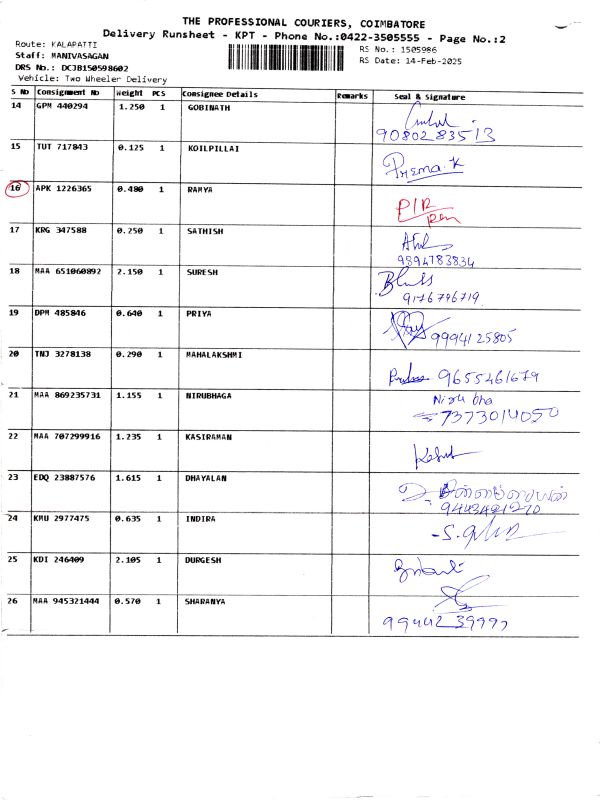 THE PROFESSIONAL COURIERS, COIMBATORE
Delivery Runsheet - KPT - Phone No.:0422-3505555 - Page No.:2
Route: KALAPATTI
Staff: MANIVASAGAN
DRS No.: DCJB150598602
Vehicle: Two Wheeler Delivery
RS No.: 1505986
RS Date: 14-Feb-2025
S No Consignment No Weight PCS Consignee Details Remarks Seal & Signature
14 GPM 440294 1.250 1 GOBINATH
9080283513
15 TUT 717843 0.125 1 KOILPILLAI
Prema.K
16 APK 1226365 0.480 1 RAMYA
P/R
17 KRG 347588 0.250 1 SATHISH
9894783834
18 MAA 651060892 2.150 1 SURESH
9176796719
19 DPM 485846 0.640 1 PRIYA
9994125805
20 TNJ 3278138 0.290 1 MAHALAKSHMI
9655461679
21 MAA 869235731 1.155 1 NIRUBHAGA
Niru bha
7373014050
22 MAA 707299916 1.235 1 KASIRAMAN
23 EDQ 23887576 1.615 1 DHAYALAN
24 KMU 2977475 0.635 1 INDIRA
25 KDI 246409 2.105 1 DURGESH
26 MAA 945321444 0.570 1 SHARANYA